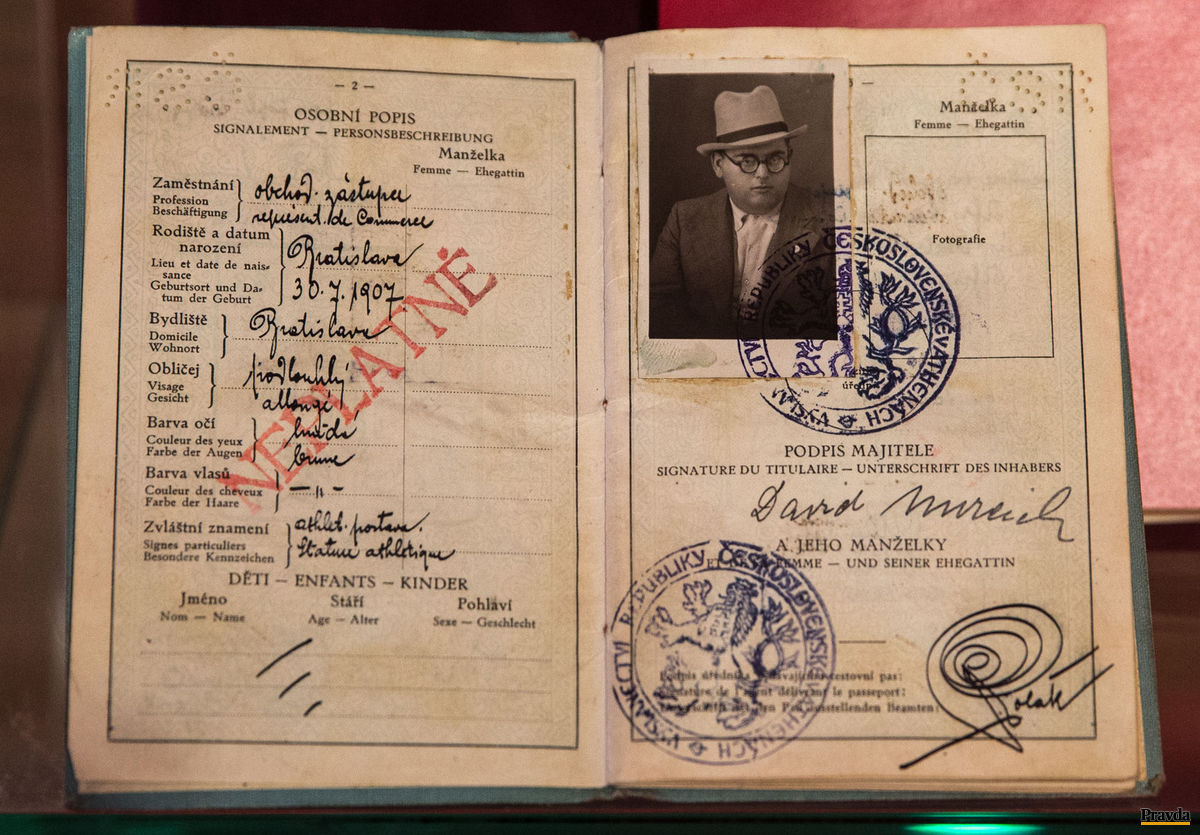 — 2 —
OSOBNÍ POPIS
SIGNALEMENT — PERSONSBESCHREIBUNG
Manželka
Femme — Ehegattin
Zaměstnání
Profession
Beschäftigung
obchod. zástupce
représent. de Commerce
Rodiště a datum
narození
Lieu et date de nais-
sance
Geburtsort und Da-
tum der Geburt
Bratislava
30.7.1907
Bydliště
Domicile
Wohnort
Bratislava
Obličej
Visage
Gesicht
podlouhlý
allongé
Barva očí
Couleur des yeux
Farbe der Augen
hnědá
brune
Barva vlasů
Couleur des cheveux
Farbe der Haare
— „ —
Zvláštní znamení
Signes particuliers
Besondere Kennzeichen
athlet. postava.
Stature athlétique
NEPLATNĚ
DĚTI — ENFANTS — KINDER
Jméno Stáří Pohlaví
Nom — Name Age — Alter Sexe — Geschlecht
Manželka
Femme — Ehegattin
Fotografie
VYSLANECTVÍ REPUBLIKY ČESKOSLOVENSKÉ V ATHENÁCH
PODPIS MAJITELE
SIGNATURE DU TITULAIRE — UNTERSCHRIFT DES INHABERS
David
A JEHO MANŽELKY
ET DE SA FEMME — UND SEINER EHEGATTIN
VYSLANECTVÍ REPUBLIKY ČESKOSLOVENSKÉ V ATHENÁCH
Podpis úředníka cestovní pas:
Signature de l'agent délivrant le passeport:
den Paß ausstellenden Beamten:
Polak
Pravda